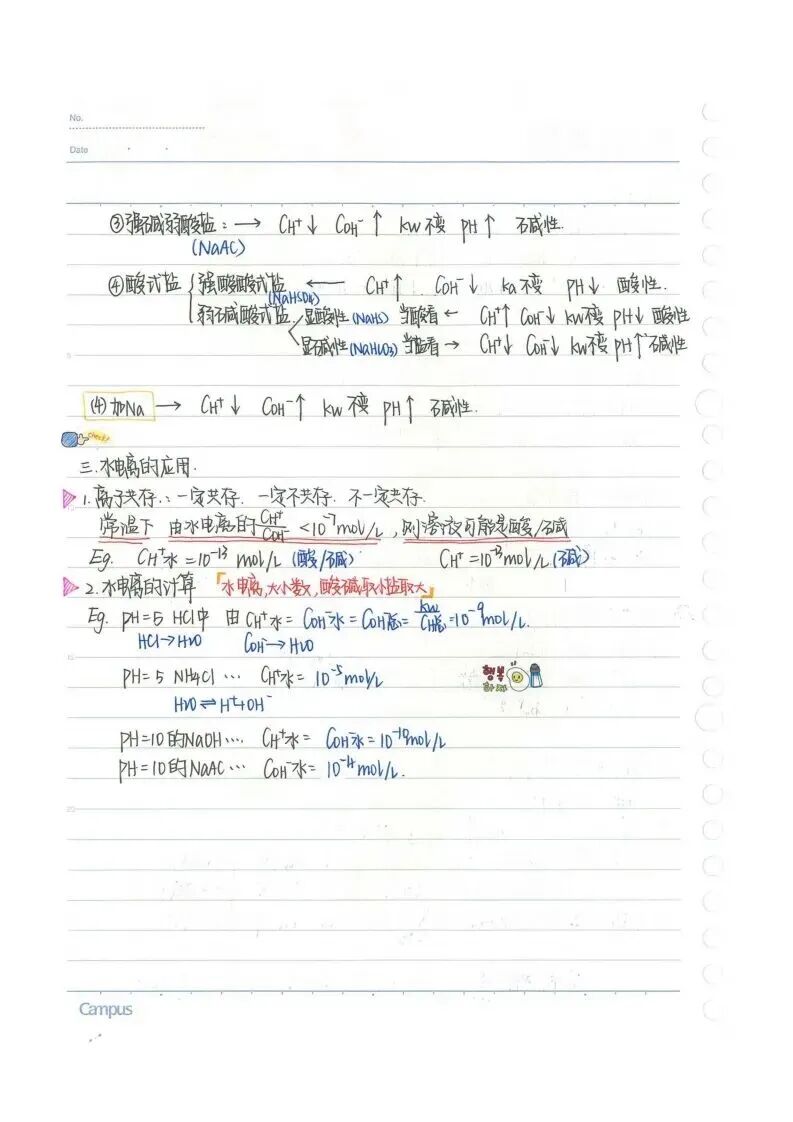 No.
Date
③强碱弱酸盐: → CH⁺↓ COH⁻↑ kw不变 pH↑ 碱性.
(NaAC)
④酸式盐 { 强酸酸式盐 ← CH⁺↑ COH⁻↓ ka不变 pH↓ 酸性.
(NaHSO4)
弱碱酸式盐 显酸性(NaHS) 当酸看 ← CH⁺↑ COH⁻↓ kw不变 pH↓ 酸性
显碱性(NaHCO3) 当盐看 → CH⁺↓ COH⁻↓ kw不变 pH↑ 碱性
(4) 加Na → CH⁺↓ COH⁻↑ kw不变 pH↑ 碱性.
check!
三.水电离的应用.
1.离子共存.: 一定共存. 一定不共存. 不一定共存.
常温下 由水电离的CH⁺/COH⁻ <10⁻⁷mol/L, 则溶液可能是酸/碱
Eg. CH⁺水=10⁻¹³ mol/L (酸/碱) CH⁺=10⁻¹³mol/L (碱)
2.水电离的计算 「水电离,大小数,酸碱取小盐取大」
Eg. pH=5 HCl中 由CH⁺水= COH⁻水= COH⁻总= kw/CH⁺总=10⁻⁹mol/L.
HCl→H2O COH⁻→H2O
pH=5 NH4Cl … CH⁺水= 10⁻⁵mol/L
행복
하자
H2O⇌H⁺+OH⁻
pH=10的NaOH… CH⁺水= COH⁻水=10⁻¹⁰mol/L
pH=10的NaAC… COH⁻水= 10⁻⁴mol/L.
Campus